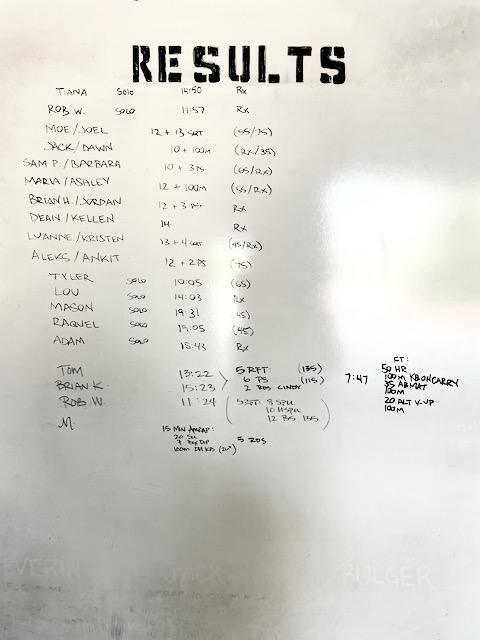 RESULTS
TIANA SOLO 14:50 Rx
ROB W. SOLO 11:57 Rx
MOE/JOEL 12 + 13 SQT (55/75)
JACK/DAWN 10 + 100M (Rx/35)
SAM P./BARBARA 10 + 3 PS (65/Rx)
MARIA/ASHLEY 12 + 100M (55/Rx)
BRIAN H./JORDAN 12 + 3 PS Rx
DEAN/KELLEN 14 Rx
LUANNE/KRISTEN 13 + 4 SQT (45/Rx)
ALEKS/ANKIT 12 + 2 PS (75)
TYLER SOLO 10:05 (65)
LOU SOLO 14:03 Rx
MASON SOLO 19:31 (45)
RAQUEL SOLO 19:05 (45)
ADAM SOLO 18:43 Rx
TOM 13:22 5 RFT: (135)
BRIAN K. 15:23 6 PS (115)
2 RDS CINDY
ROB W 11:24 5 RFT: 8 SPU
10 HSPU
12 BS 135
M
7:47
FT:
50 HR
100M KB OH CARRY
35 ABMAT
100M
20 ALT V-UP
100M
15 MIN AMRAP:
20 SU
7 BOX DIP 5 RDS
100M OH KB (20#)
EVERIN JACK BULGER